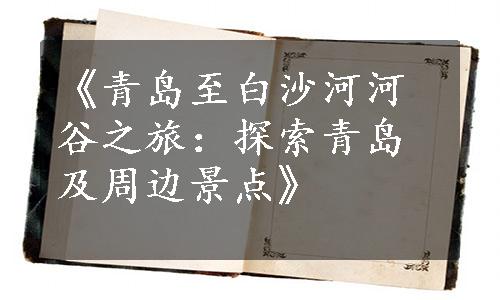 《青岛至白沙河河
谷之旅：探索青岛
及周边景点》